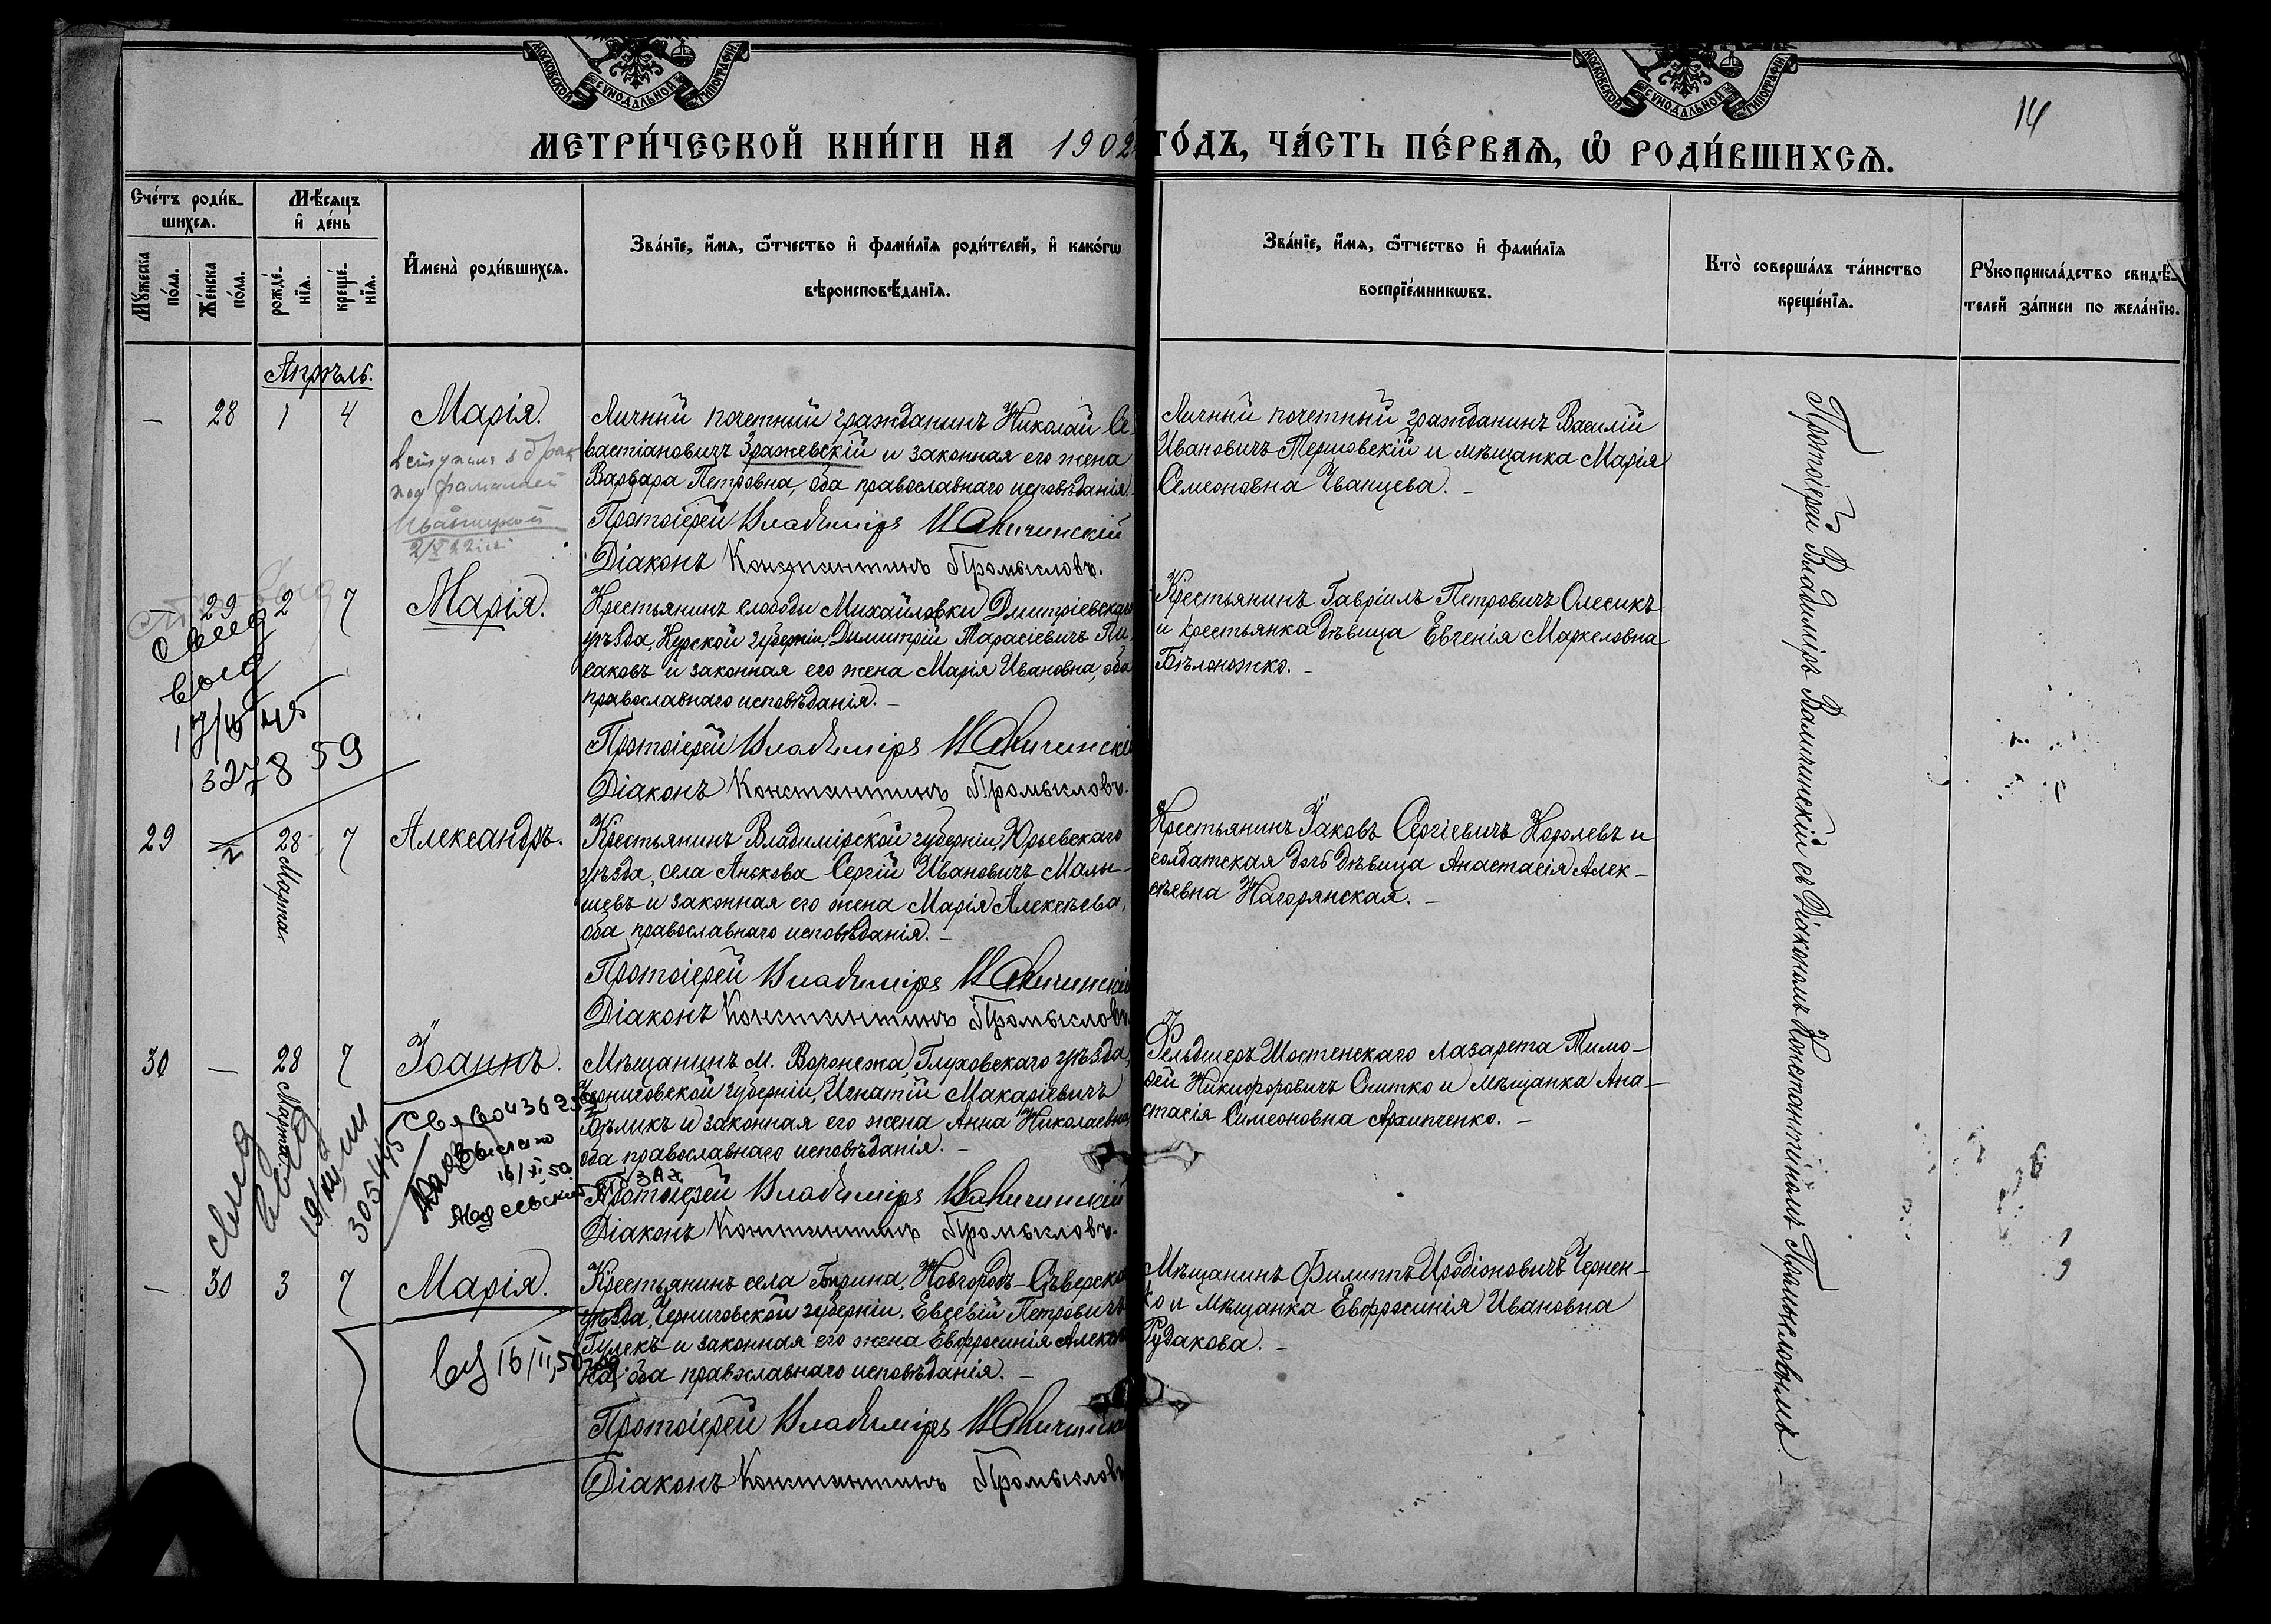 МОСКОВСКОЙ СѴНОДАЛЬНОЙ ТИПОГРАФІИ
МОСКОВСКОЙ СѴНОДАЛЬНОЙ ТИПОГРАФІИ
14
МЕТРИ́ЧЕСКОЙ КНИ́ГИ НА 1902 ГО́ДЪ, ЧА́СТЬ ПЕ́РВАѦ, Ѡ РОДИ́ВШИХСѦ.
Сче́тъ роди́в-
шихсѧ.
Мꙋ́жеска
по́ла.
Же́нска
по́ла.
Мѣ́сѧцъ
и҆ де́нь
рожде́-
нїѧ.
креще́-
нїѧ.
И҆мена̀ роди́вшихсѧ.
Зва́нїе, и҆́мѧ, ѻ҆́тчество и҆ фами́лїѧ роди́телей, и҆ како́гѡ
вѣроисповѣ́данїѧ.
Зва́нїе, и҆́мѧ, ѻ҆́тчество и҆ фами́лїѧ
воспрїе́мникѡвъ.
Кто̀ соверша́лъ та́инство
креще́нїѧ.
Рꙋкоприкла́дство свидѣ́-
телей за́писи по жела́нїю.
Апрѣль.
— 28 1 4 Марія.
вступила в брак
под фамилией
Личный почетный гражданинъ Николай Се-
вастіановичъ Зражевскій и законная его жена
Варвара Петровна, оба православнаго исповѣданія.
Протоіерей Владиміръ
Діаконъ Константинъ Промысловъ.
Личный почетный гражданинъ Василій
Ивановичъ Терновскій и мѣщанка Марія
Семеоновна Чванцева. –
29 2 7 Марія.
выд
32 78 59
Крестьянинъ слободы Михайловки Дмитріевскаго
уѣзда, Курской губерніи, Димитрій Тарасіевичъ Пи-
саковъ и законная его жена Марія Ивановна, оба
православнаго исповѣданія. –
Протоіерей Владиміръ
Діаконъ Константинъ Промысловъ.
Крестьянинъ Гавріилъ Петровичъ Олесикъ
и крестьянка дѣвица Евгенія Маркеловна
Бѣлоножко. –
29 28 Марта 7 Александръ.
Крестьянинъ Владимірской губерніи, Юрьевскаго
уѣзда, села Анькова Сергій Ивановичъ Малы-
шевъ и законная его жена Марія Алексѣева,
оба православнаго исповѣданія. –
Протоіерей Владиміръ
Діаконъ Константинъ Промысловъ
Крестьянинъ Іаковъ Сергіевичъ Королевъ и
солдатская дочь дѣвица Анастасія Алек-
сѣевна Нагорянская. –
30 — 28 Марта 7 Іоаннъ.
305445
16/XI 50
Мѣщанинъ м. Воронежа, Глуховскаго уѣзда,
Черниговской губерніи, Игнатій Макаріевичъ
Бѣликъ и законная его жена Анна Николаевна,
оба православнаго исповѣданія. –
Протоіерей Владиміръ
Діаконъ Константинъ Промысловъ.
Фельдшеръ Шостенскаго лазарета Тимо-
фей Никифоровичъ Снитко и мѣщанка Ана-
стасія Симеоновна Архипченко. –
— 30 3 7 Марія.
16/II, 50
Крестьянинъ села Бирина, Новгородъ-Сѣверска
уѣзда, Черниговской губерніи, Евсевій Петровичъ
Гулекъ и законная его жена Евфросинія
оба православнаго исповѣданія. –
Протоіерей Владиміръ
Діаконъ Константинъ Промысловъ
Мѣщанинъ Филиппъ Иродіоновичъ Чернен-
ко и мѣщанка Евфросинія Ивановна
Рудакова. –
Протоіерей Владиміръ съ Діакономъ Константиномъ Промысловымъ. –